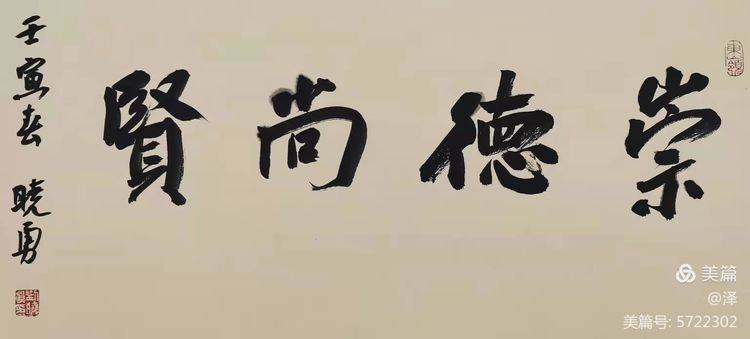 崇德尚賢
壬寅春 曉勇
美篇
@泽
美篇号: 5722302